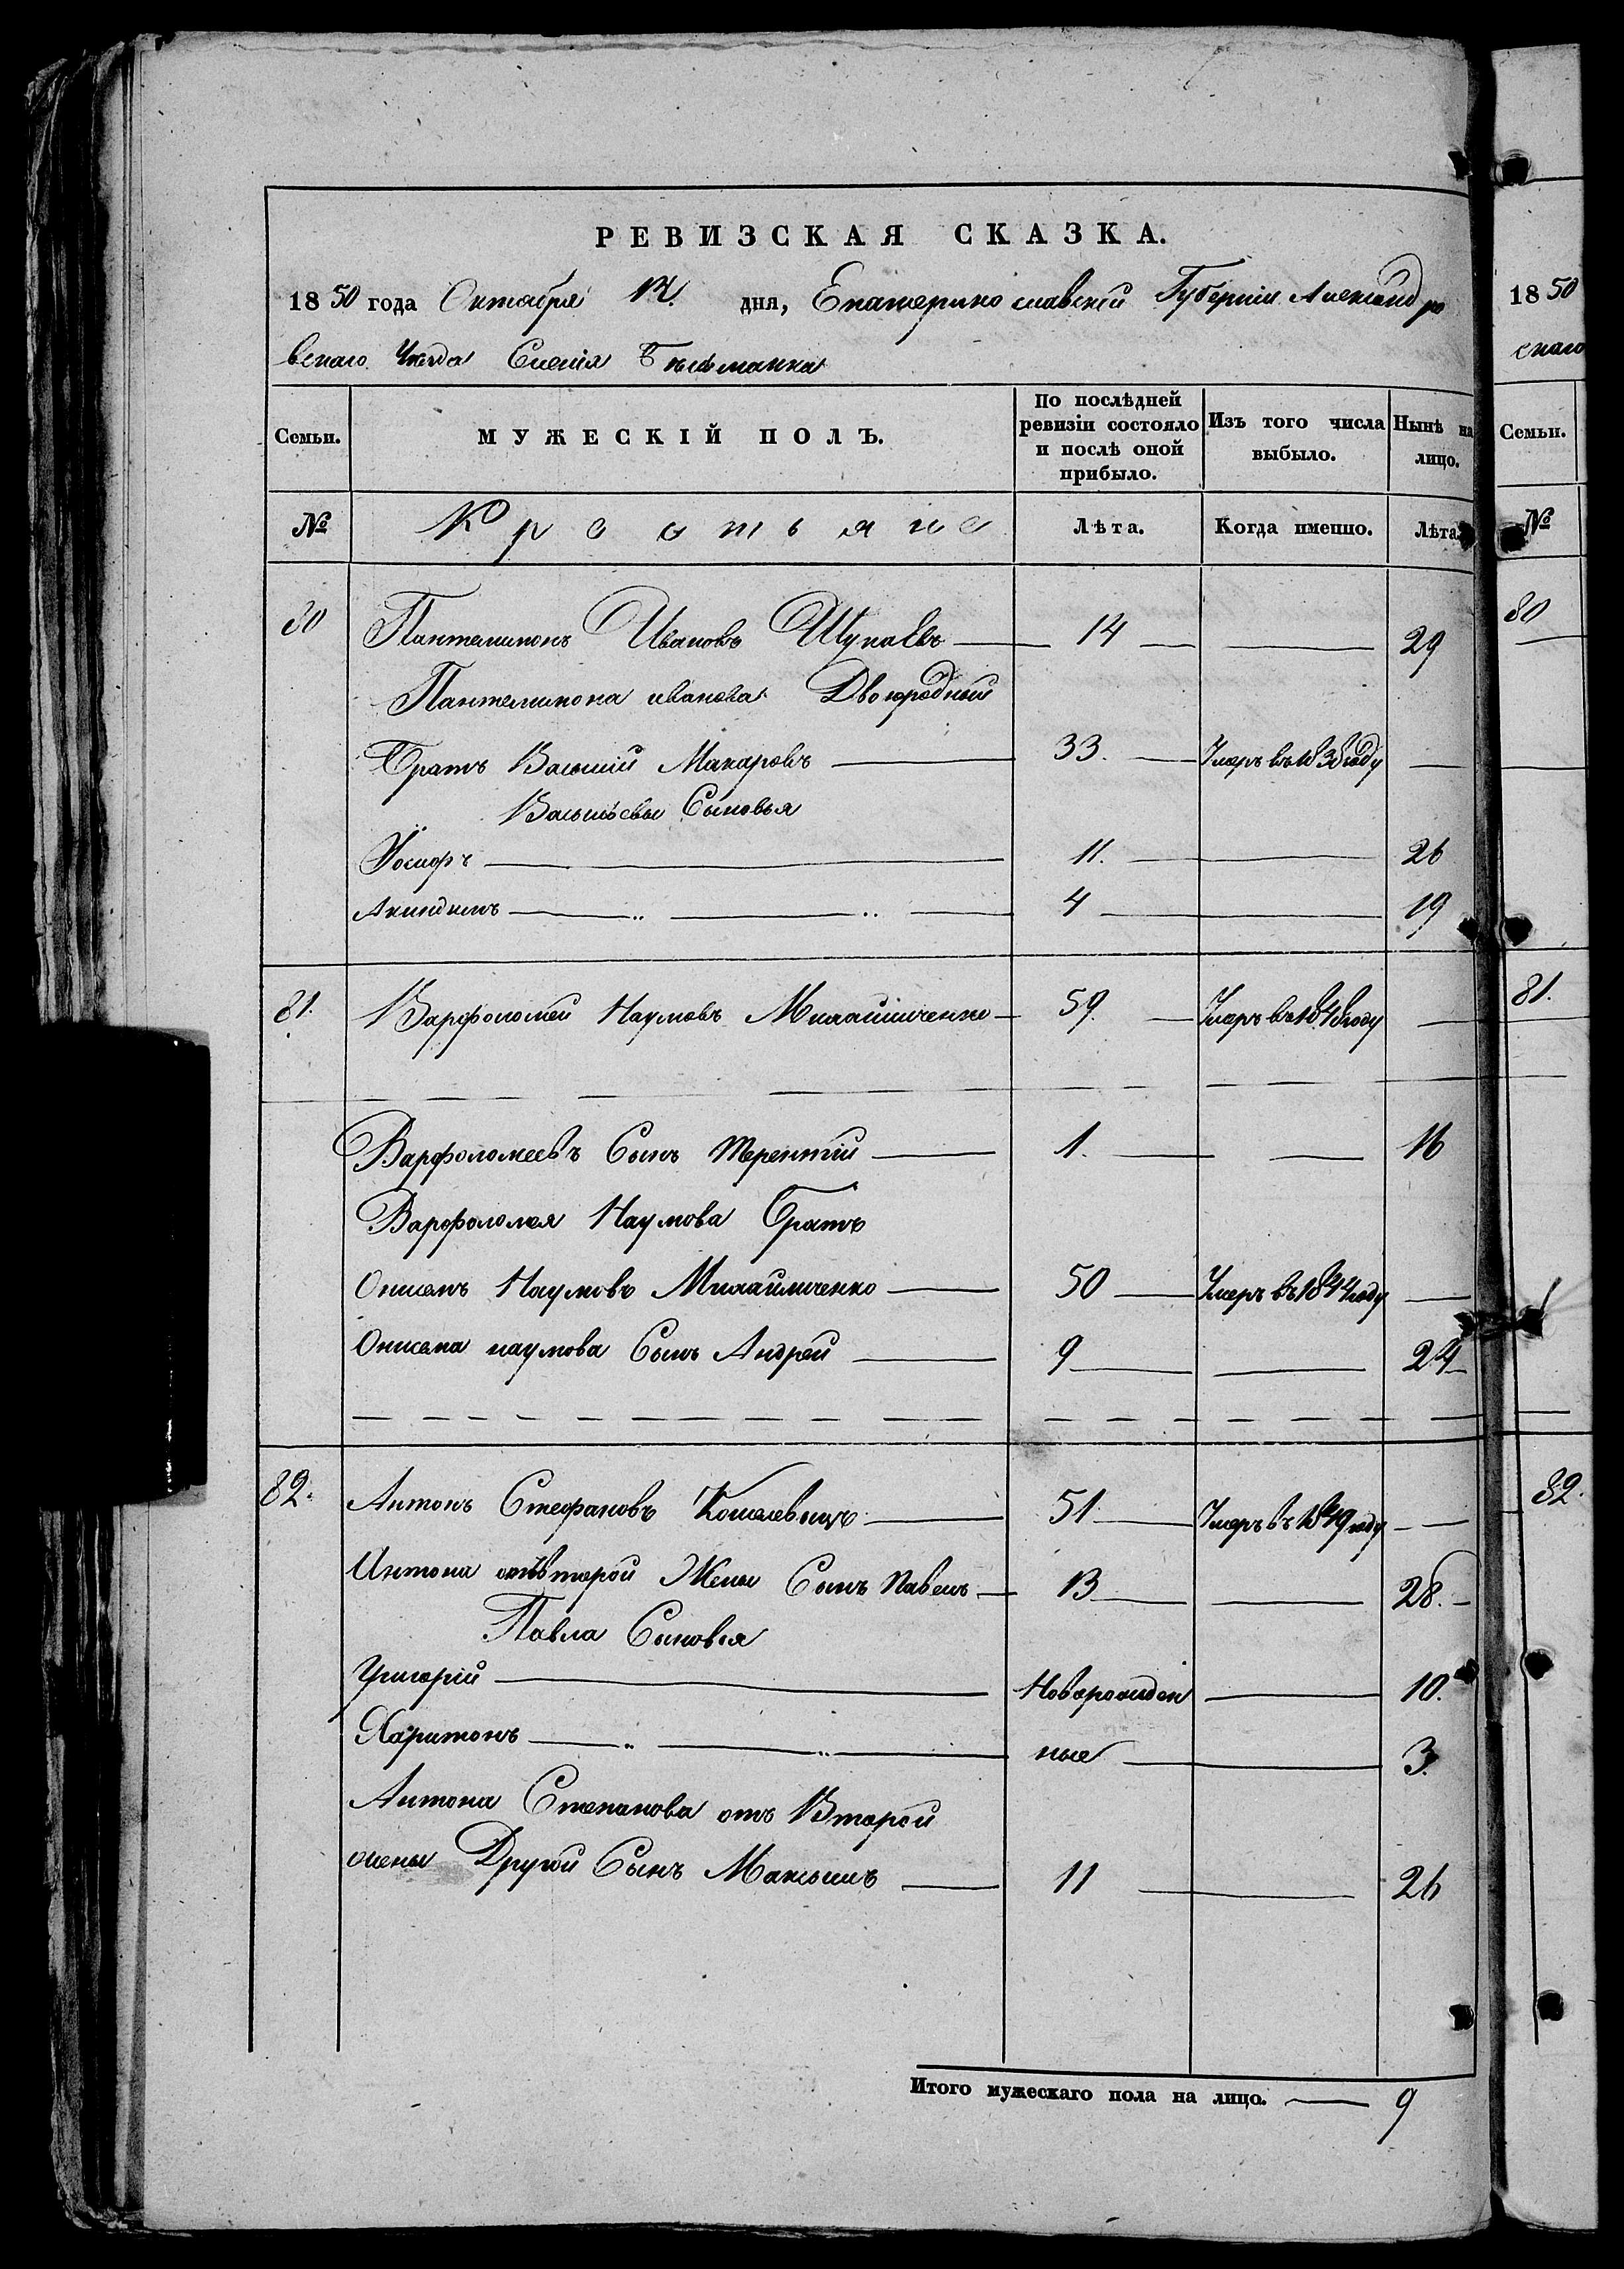 РЕВИЗСКАЯ СКАЗКА.
1850 года Октября дня, Екатерино славской Губернии Александро
вскаго Уезда Селенія
Семьи. МУЖЕСКІЙ ПОЛЪ. По послѣдней ревизіи состояло и послѣ оной прибыло. Изъ того числа выбыло. Нынѣ на лицо.
№ Крестьяне Лѣта. Когда именно. Лѣта.
80 Пантелимонъ Ивановъ 14 29
Пантелимона иванова Двоюродный
Братъ Василий Макаровъ 33. Умеръ въ 18 году
Васильевы Сыновья
11. 26
Акиндинъ 4 19
81. Варфоломей Наумовъ 59. Умеръ въ 18 году
Варфоломеевъ Сынъ терентий 1. 16
Варфоломея Наумова Братъ
Онисимъ Наумовъ 50 Умеръ въ 1844 году
наумова Сынъ Андрей 9 24
82. Антонъ Стефановъ 51 Умеръ въ 1849 году
Антона отъ второй Жены Сынъ Павелъ 13 28.
Павла Сыновья
Григорій Новорожден 10.
Харитонъ ные 3.
Антона Степанова отъ Второй
жены Другой Сынъ Максимъ 11 26
Итого мужескаго пола на лицо. 9
1850
скаго
Семьи.
№
80
81.
82.